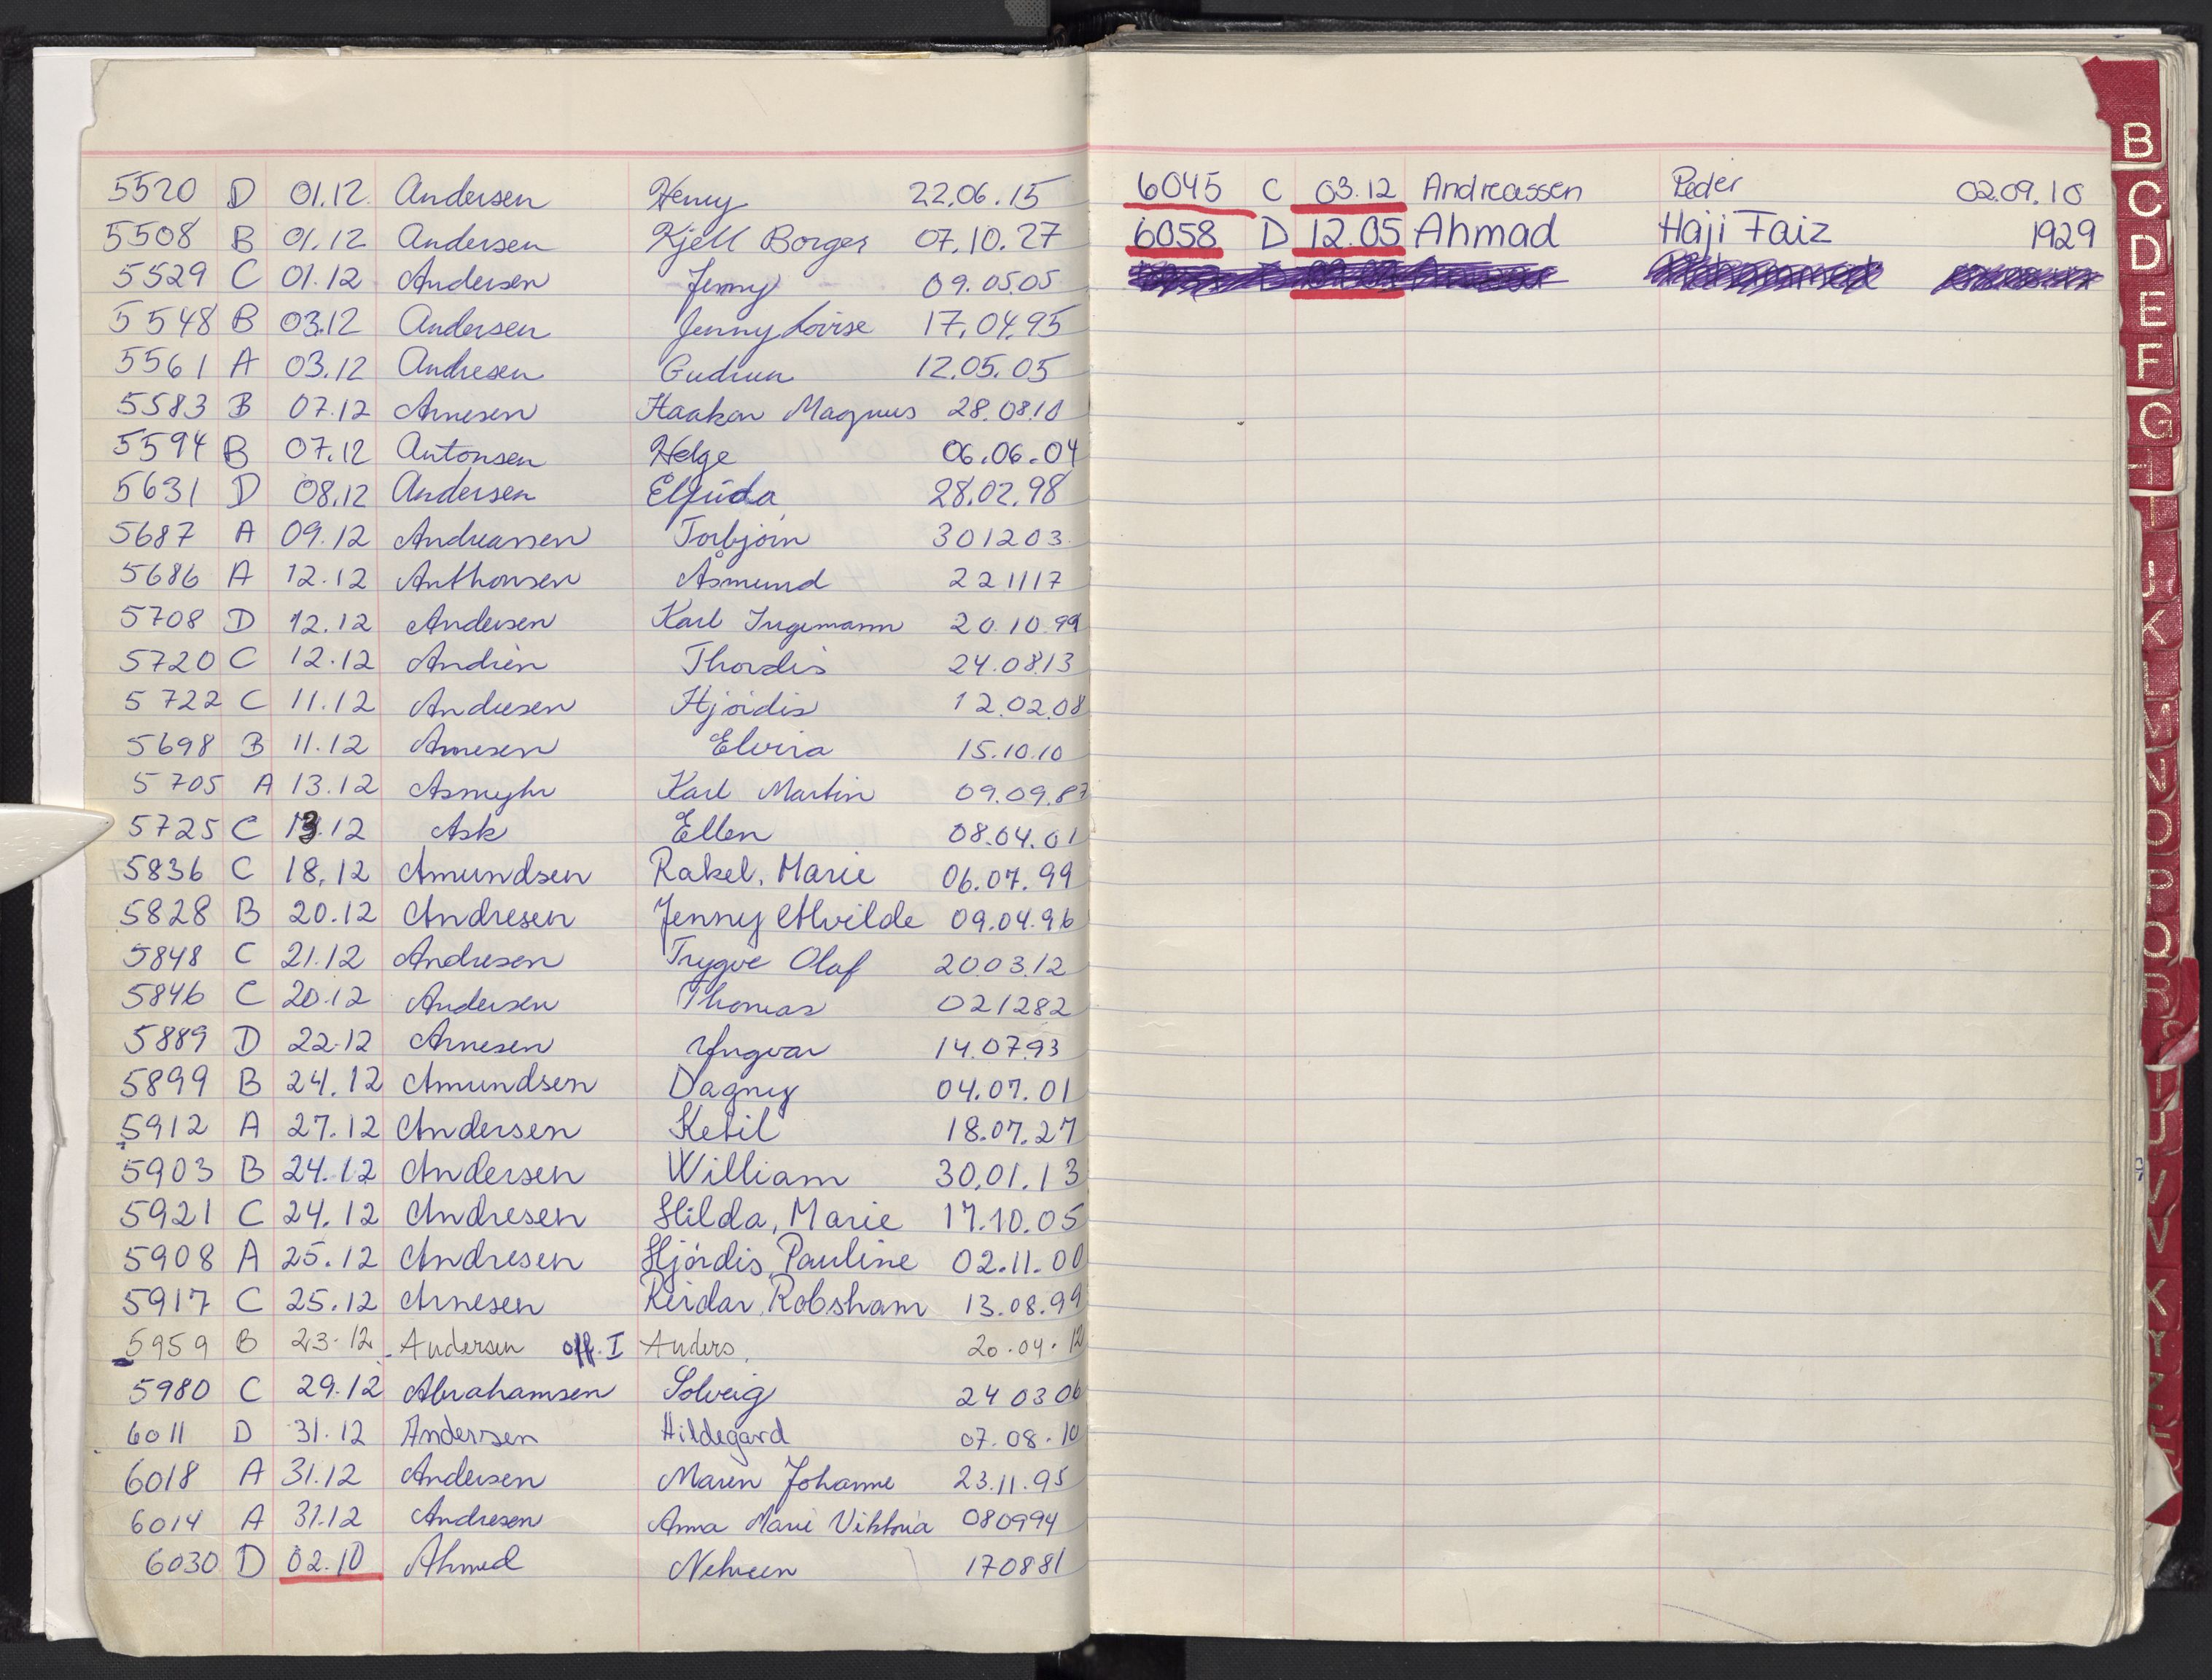 5520 D 01.12. Andersen Henry 22.06.15
5508 B 01.12 Andersen Kjell Borger 07.10.27
5529 C 01.12 Andersen Jenny 09.05.05
5548 B 03.12 Andersen Jenny Lovise 17.04.95
5561 A 03.12 Andresen Gudrun 12.05.05
5583 B 07.12 Arnesen Haakon Magnus 28.08.10
5594 B 07.12 Antonsen Helge 06.06.04
5631 D 08.12 Andersen Elfrida 28.02.98
5687 A 09.12 Andreassen Torbjörn 301203
5686 A 12.12 Anthonsen Åsmund 221117
5708 D 12.12 Andersen Karl Ingemann 20.10.99
5720 C 12.12 Andrèn Thordis 24.0813
5722 C 11.12 Andresen Hjördis 12.02.08
5698 B 11.12 Arnesen Elvira 15.10.10
5705 A 13.12 Asmyhr Karl Martin 09.09.87
5725 C 13.12 Ask Ellen 08.04.01
5836 C 18.12 Amundsen Rakel, Marie 06.07.99
5828 B 20.12 Andresen Jenny Alvilde 09.04.96
5848 C 21.12 Andresen Trygve Olaf 2003.12
5846 C 20.12 Andersen Thomas 021282
5889 D 22.12 Arnesen Yngvar 14.07.93
5899 B 24.12 Amundsen Dagny 04.07.01
5912 A 27.12 Andersen Ketil 18.07.27
5903 B 24.12 Andersen William 30.01.13
5921 C 24.12 Andresen Hilda, Marie 17.10.05
5908 A 25.12 Andresen Hjördis, Pauline 02.11.00
5917 C 25.12 Arnesen Reidar, Robsham 13.08.99
5959 B 23.12 Andersen off. I Anders. 20.04.12
5980 C 29.12 Abrahamsen Solveig 240306
6011 D 31.12 Andersen Hildegard 07.08.10
6018 A 31.12 Andersen Maren Johanne 23.11.95
6014 A 31.12 Andresen Anna Marie Viktoria 080994
6030 D 02.10 Ahmed 170881
6045 C 03.12 Andreassen Peder 02.09.10
6058 D 12.05 Ahmad Haji Faiz 1929
B
C
D
E
F
G
H
I
J
K
L
M
N
O
P
Q
R
T
U
V
X
Y